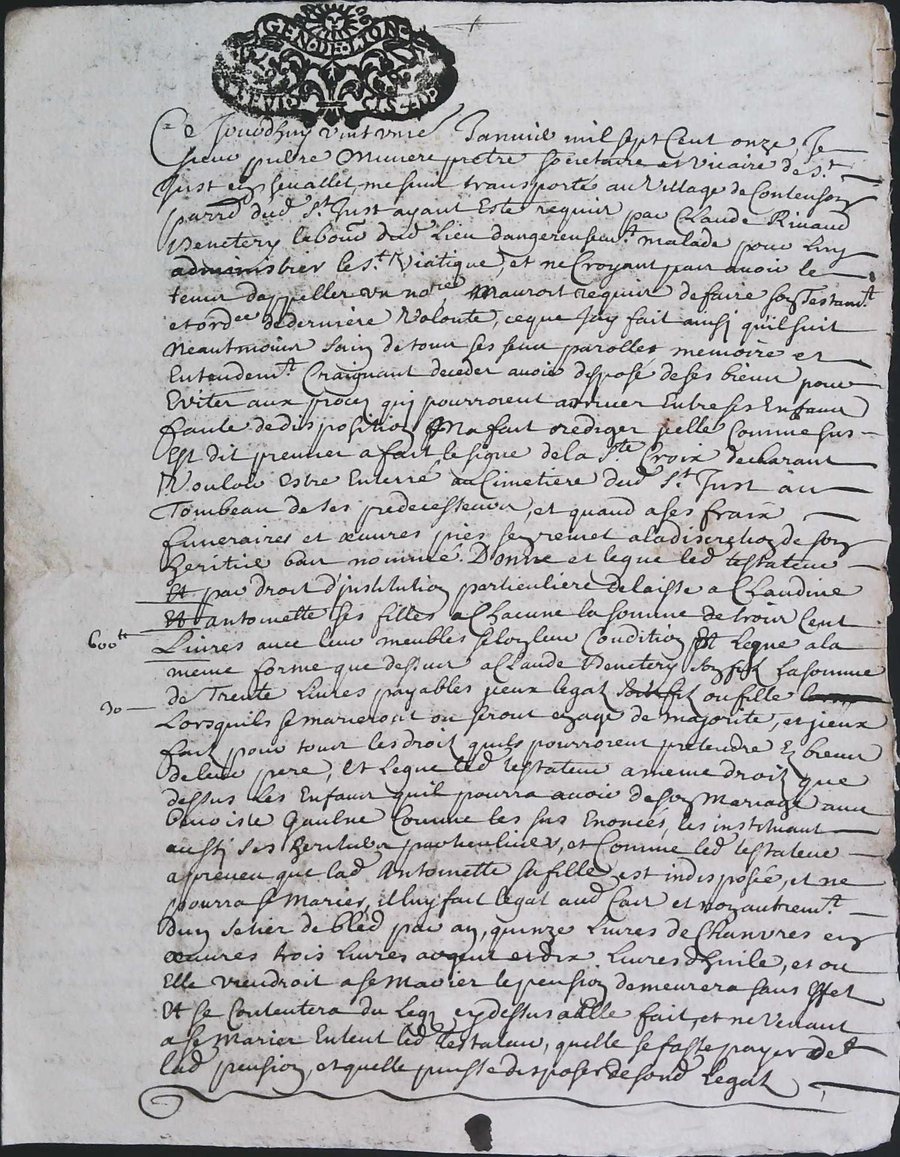 GEN DE LION
Ce Jourdhuy vint unie Janvie mil sept Cent onze, Je
sieur pierre prêtre societaire et vicaire de St
Just en Chevallet, me suis transporté au Village de Contenson
parr dud St Just ayant Esté requis par Claude Rivaud
Demetery labour dud Lieu dangereusemt malade pour luy
administrer le St Viatique, et ne Croyant pas avoir le
temps dappeller un nore, Mauroit requis de faire son Testamt
et ordce de derniere Volonté, ce que Jay fait ainsj quil suit
Neautmoins sain de tous ses sens parolles memoire et
Entendemt Craignant deceder avoir disposé de ses biens pour
Eviter aux procez qui pourroient arriver Entre ses Enfans
faute de disposition Ma fait rediger jcelle Comme sus
Est dit premier a fait le signe de la Ste Croix declarant
Vouloir Estre Enterré au Cimetiere dud St Just au
Tombeau de ses predecesseurs, et quand a ses fraix
funeraires et œuvres pies sen remet a la discretion de son
heritier bas nommé. Donne et legue led testateur
Et par droit d'institution particuliere delaisse a Claudine
Et antoinette ses filles a Chacune la somme de trois Cent
600tt Livres avec leur meubles selon leur Condition Et legue a la
meme forme que dessus a Claude Demetery son fils la somme
30 de Trente Livres payables jceux legat fils ou fille
Lorsquils se marieront ou seront en age de majorité, et jceux
fait pour tous les droit quils pourroient pretendre Es biens
de leur pere, Et legue led testateur a meme droit que
dessus Les Enfans quil pourra avoir de son Mariage avec
benoiste Gaulne Comme les sus Enoncés, les instituant
aussi ses heritiers particuliers, et Comme led testateur
a preveu que lad Antoinette sa fille est indisposée, et ne
pourra se Marier, il luy fait legat aud Cas et non autremt
Dun setier de bled par an, quinze Livres de Chanvres en
œuvres trois Livres argent et dix Livres dhuile, et ou
Elle viendroit a se Marier le pension demeurera sans effet
Et se Contentera du Leg cy dessus a Elle fait, et ne Venant
a se Marier Entent led Testateur, quelle se fasse payer de
lad pension, et quelle puisse disposer de sond Legat